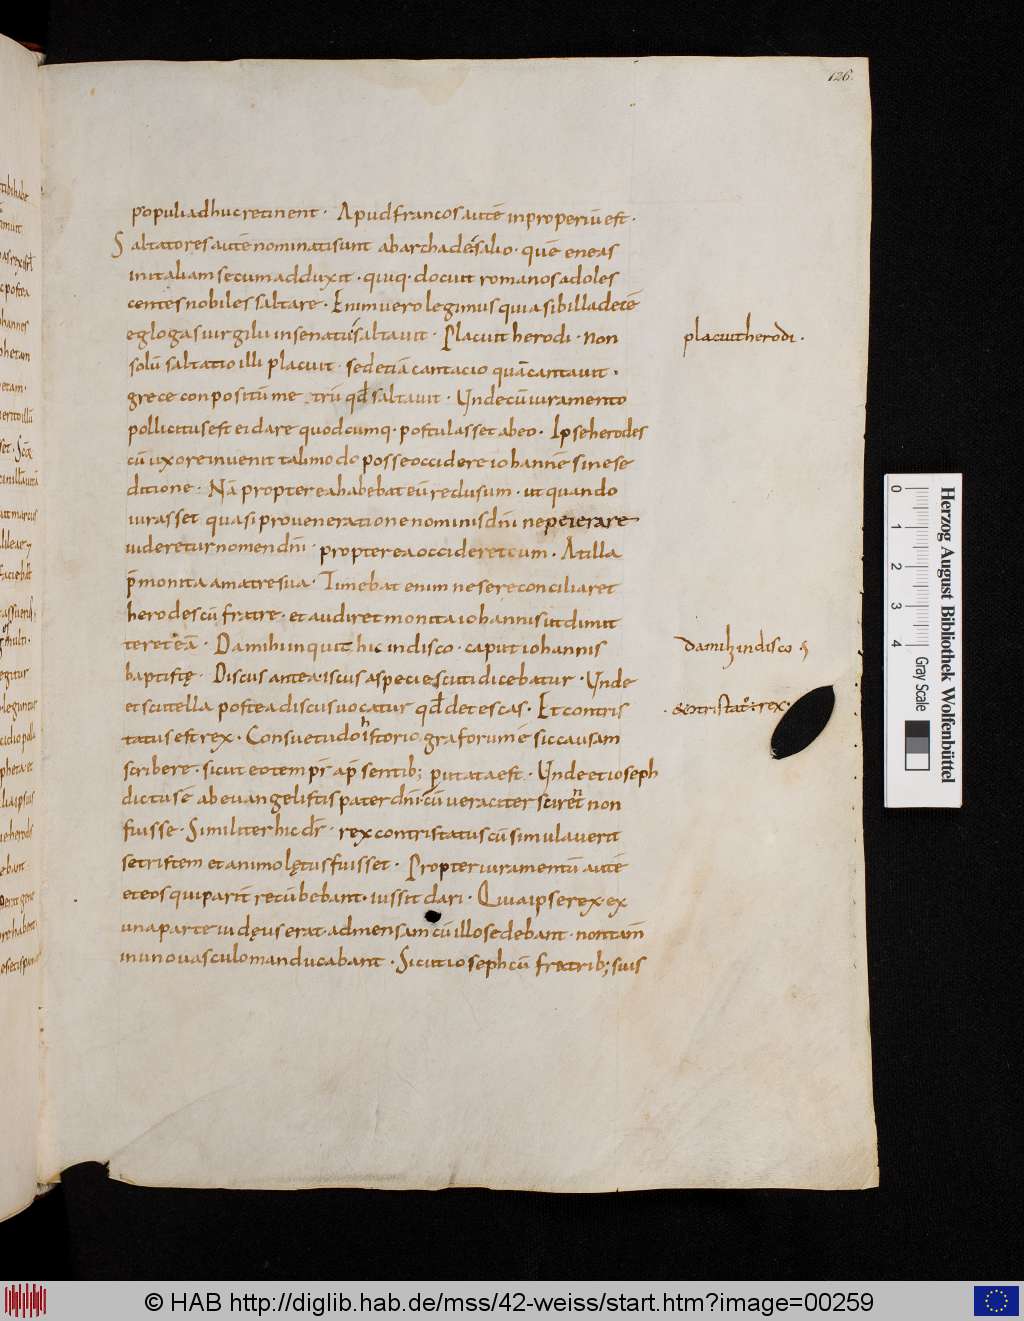 126.
populi adhuc retinent · Apud francos autē inproperiū est ·
Saltatores autē nominati sunt ab archade salio · quē eneas
in italiam secum adduxit · quiq· docuit romanos adoles
centes nobiles saltare · Enimvero legimus quia sibilla decē
eglogas virgilii in senatu saltavit · Placuit herodi · non
placuit herodi ·
solū saltatio illi placuit · sed etiā cantacio quā cantavit ·
grece conpositū me trū qd saltavit · Unde cū iuramento
pollicitus est ei dare quodcumq· postulasset ab eo · Ipse herodes
cū uxore invenit tali modo posse occidere iohannē sine se
ditione · Nā propterea habebat eū reclusum · ut quando
iurasset quasi pro veneratione nominis dn̄i ne peierare
videretur nomen dn̄i · propterea occideret eum · At illa
p̄monita a matre sua · Timebat enim ne se reconciliaret
herodes cū fratre · et audiret monita iohannis ut dimit
teret eā · Da mihi inquit hic in disco · caput iohannis
da mihi in disco
baptistę · Discus antea iscus a specie scuti dicebatur · Unde
et scutella postea discus vocatur qd det escas · Et contris
& ctristat' ē rex·
tatus est rex · Consuetudo historiograforum ē sic causam
scribere · sicut eo tempr̄ ap̄ sentib; putata est · Unde et ioseph
dictus ē ab evangelistis pater dn̄i cū veraciter scirent non
fuisse · Similiter hic dr̄ · rex contristatus cū simulaverit
se tristem et animo lętus fuisset · Propter iuramentū autē
et eos qui parit̄ recūbebant · iussit dari · Quia ipse rex · ex
una parte iudęus erat · ad mensam cū illo sedebant · non tam̄
in uno vasculo manducabant · Sicuti ioseph cū fratrib; suis
Herzog August Bibliothek Wolfenbüttel
0 1 2 3 4
Gray Scale
© HAB http://diglib.hab.de/mss/42-weiss/start.htm?image=00259